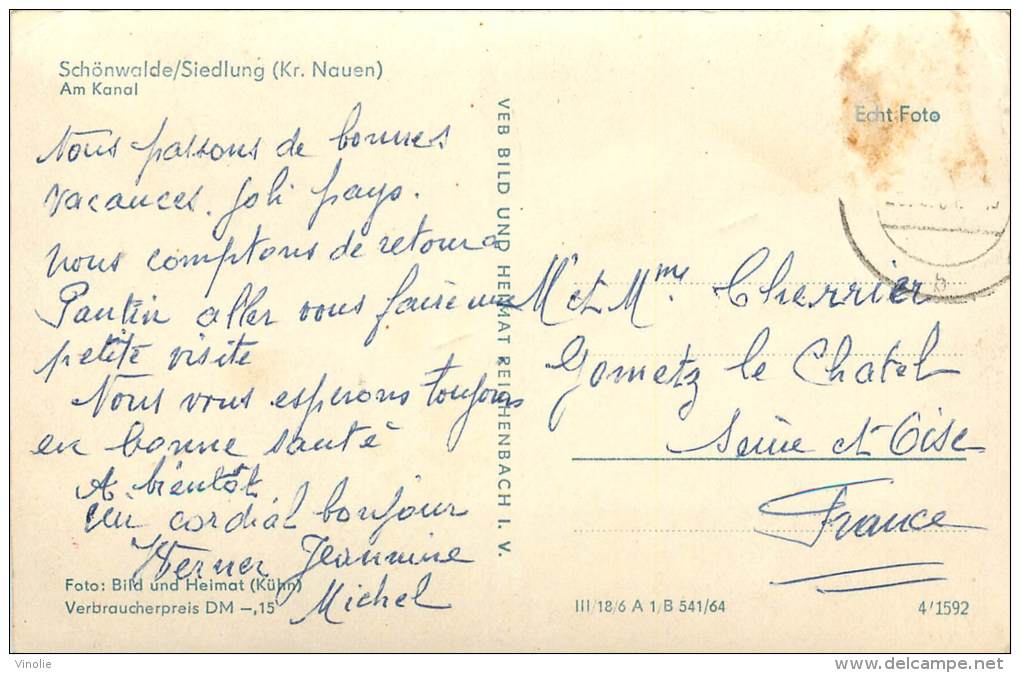 Schönwalde/Siedlung (Kr. Nauen)
Am Kanal
Nous passons de bonnes
vacances. Joli pays.
Nous comptons de retour à
Pantin aller vous faire une
petite visite
Nous vous espérons toujours
en bonne santé
A bientôt
Un cordial bonjour
Werner Jeannine
Michel
Foto: Bild und Heimat (Kühn)
Verbraucherpreis DM –,15
VEB BILD UND HEIMAT REICHENBACH I. V.
Echt Foto
b
Mr et Mme Cherrier
Gometz le Chatel
Seine et Oise
France
III/18/6 A 1/B 541/64
4/1592
Vinolie
http://www.delcampe.net